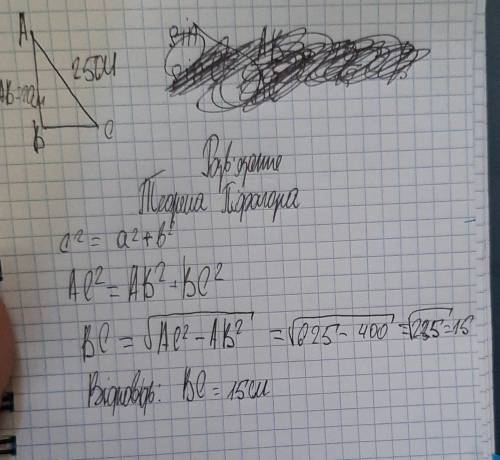 A
25см
AB=20см
B C
Розв'язання
Теорема Піфагора
c² = a² + b²
AC² = AB² + BC²
BC = √AC² − AB² = √625 − 400 = √225 = 15
Відповідь: BC = 15см